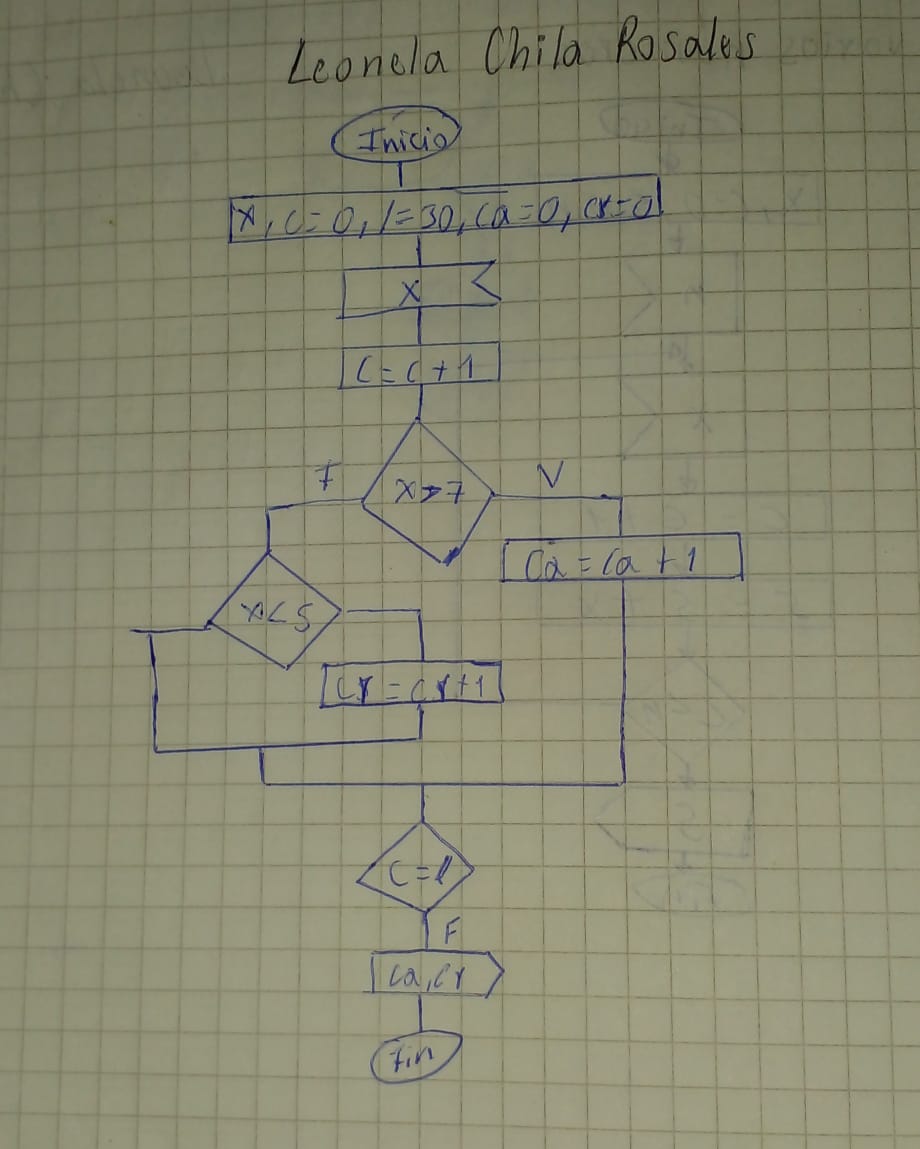 Leonela Chila Rosales
Inicio
X, C=0, l=30, Ca=0, Cr=0
X
C=C+1
X>7
F
V
Ca=Ca+1
X<5
Cr=Cr+1
C=l
F
Ca, Cr
Fin